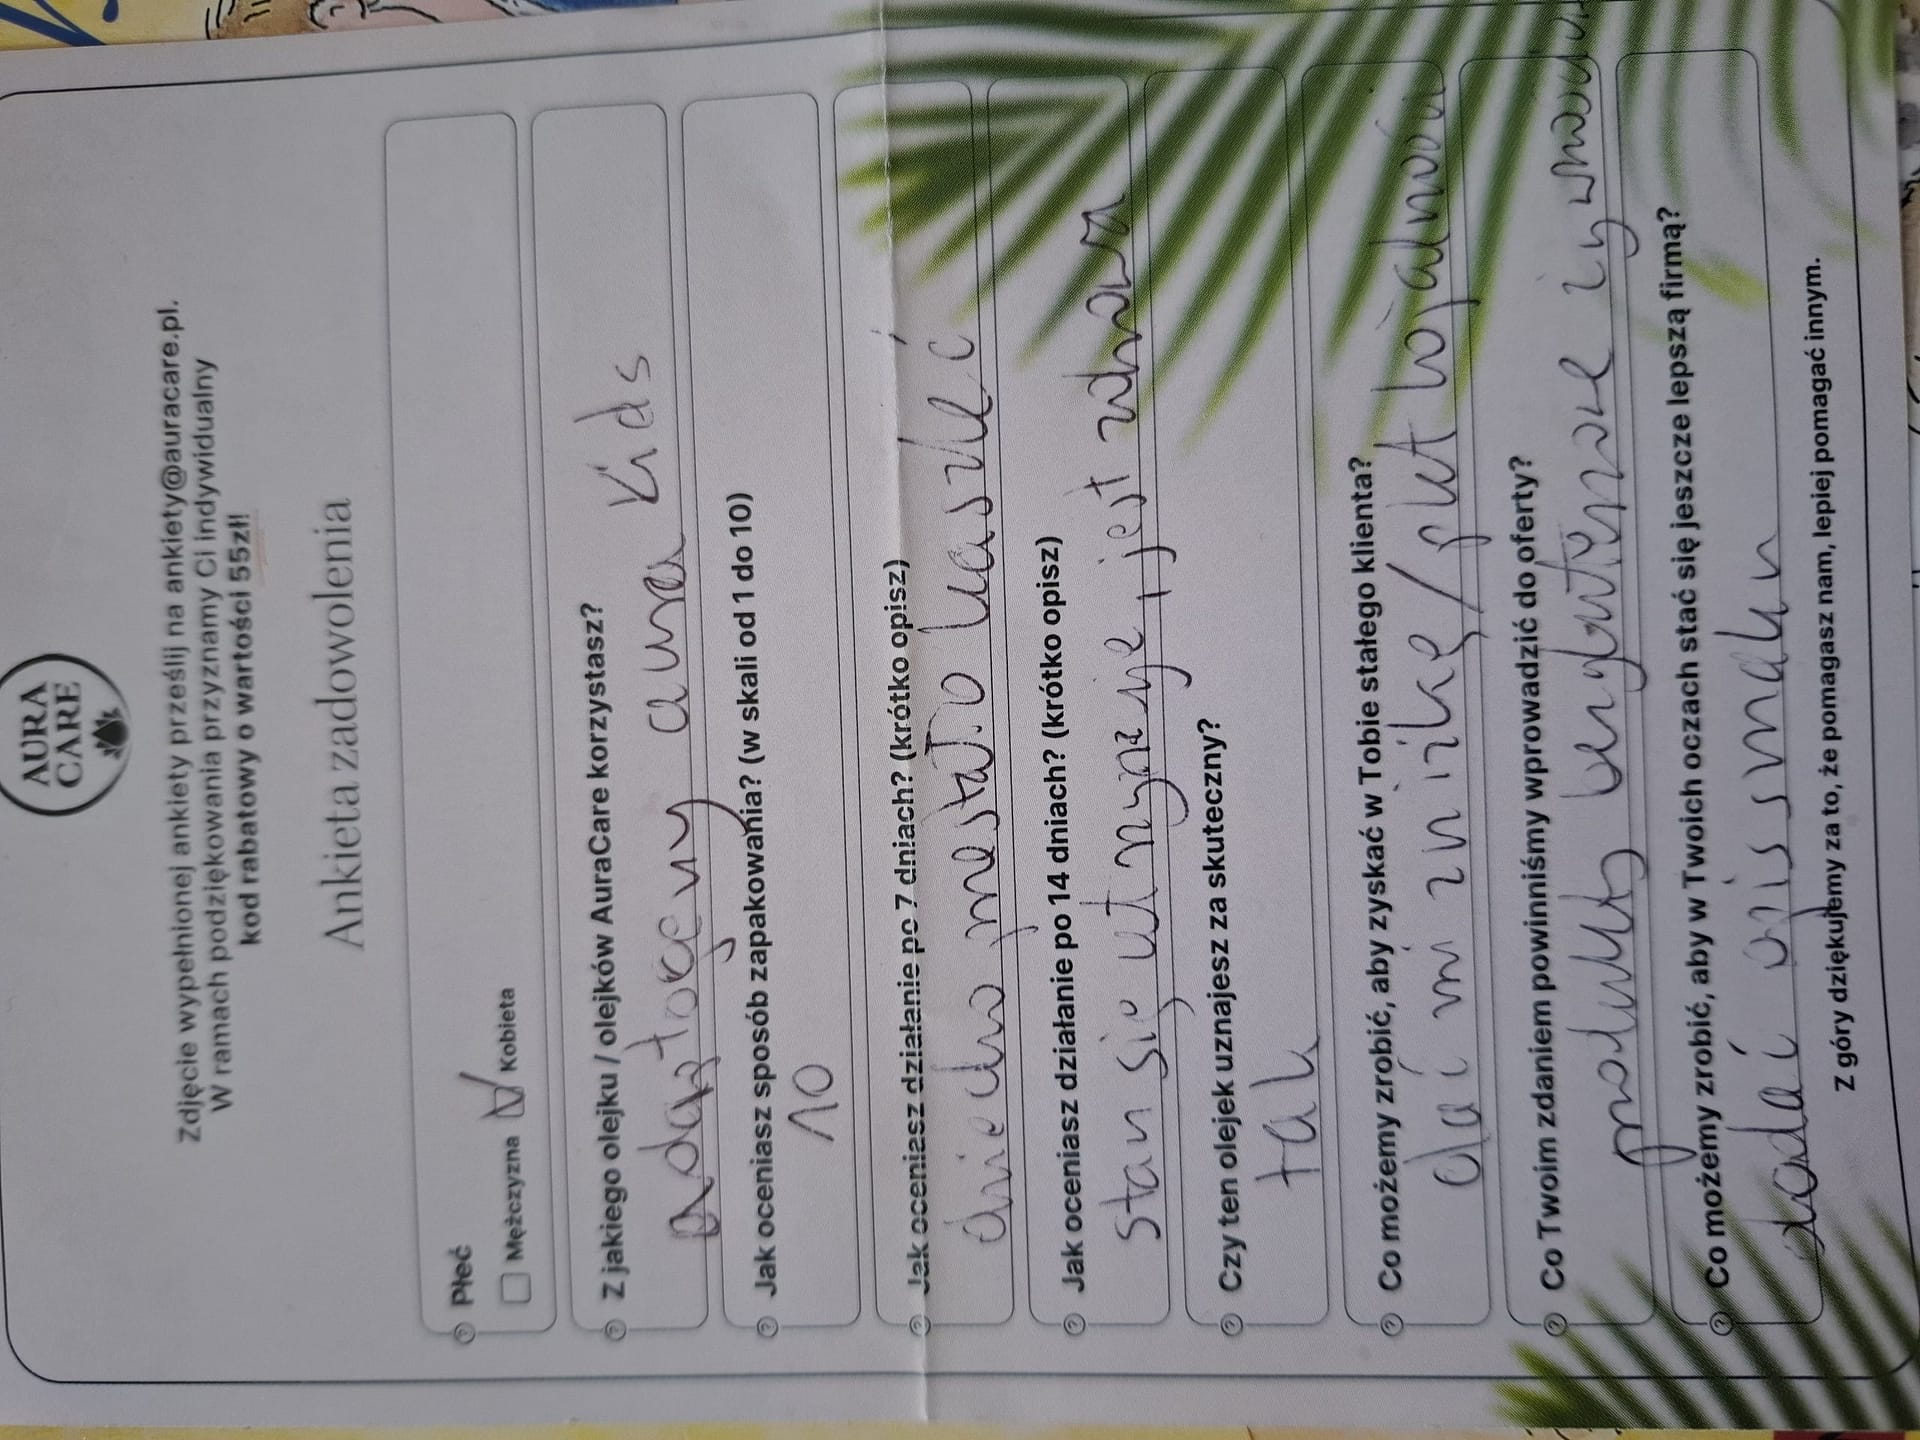 AURA
CARE
Zdjęcie wypełnionej ankiety prześlij na ankiety@auracare.pl.
W ramach podziękowania przyznamy Ci indywidualny
kod rabatowy o wartości 55zł!
Ankieta zadowolenia
Płeć
Mężczyzna Kobieta
Z jakiego olejku / olejków AuraCare korzystasz?
aura Kids
Jak oceniasz sposób zapakowania? (w skali od 1 do 10)
10
Jak oceniasz działanie po 7 dniach? (krótko opisz)
przestało kaszleć
Jak oceniasz działanie po 14 dniach? (krótko opisz)
stan się utrzymuje i jest zdrowa
Czy ten olejek uznajesz za skuteczny?
tak
Co możemy zrobić, aby zyskać w Tobie stałego klienta?
dać mi zniżkę /
Co Twoim zdaniem powinniśmy wprowadzić do oferty?
produkty
Co możemy zrobić, aby w Twoich oczach stać się jeszcze lepszą firmą?
dodać opis smaku
Z góry dziękujemy za to, że pomagasz nam, lepiej pomagać innym.